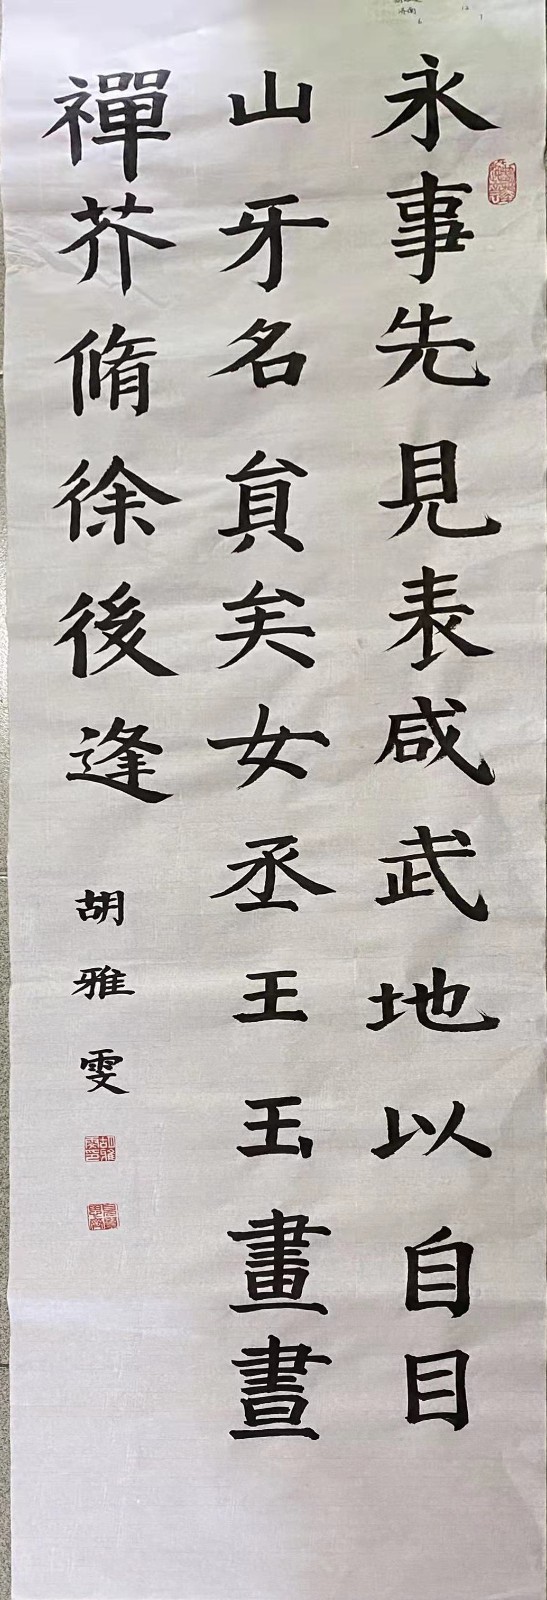 永事先見表咸武地以自目
山牙名負矣女丞王玉畫晝
禪芥脩徐後逢
胡雅雯